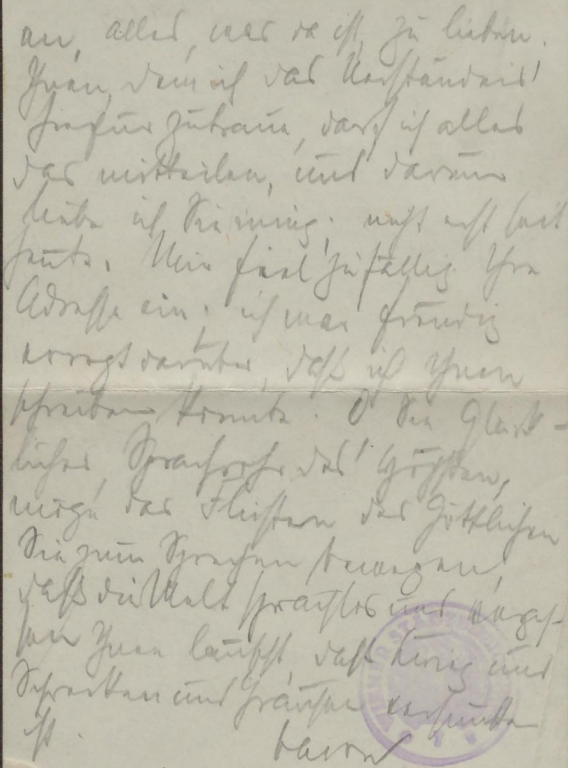 an, alles, was da ist, zu lieben.
Ihnen, dem ich das Verständnis
hiefür zutraue, darf ich alles
das mitteilen, und darum
liebe ich Sie innig; nicht erst seit
heute. Mir fiel zufällig Ihre
Adresse ein; ich war freudig
erregt darüber, daß ich Ihnen
schreiben konnte. O Sie Glück-
licher, Sprachrohr des Höchsten,
möge das Flüstern des Göttlichen
Sie zum Sprechen bewegen,
daß die Welt sprachlos und
Ihnen lauscht, daß Krieg und
Schrecken und Grausen versunken
ist.